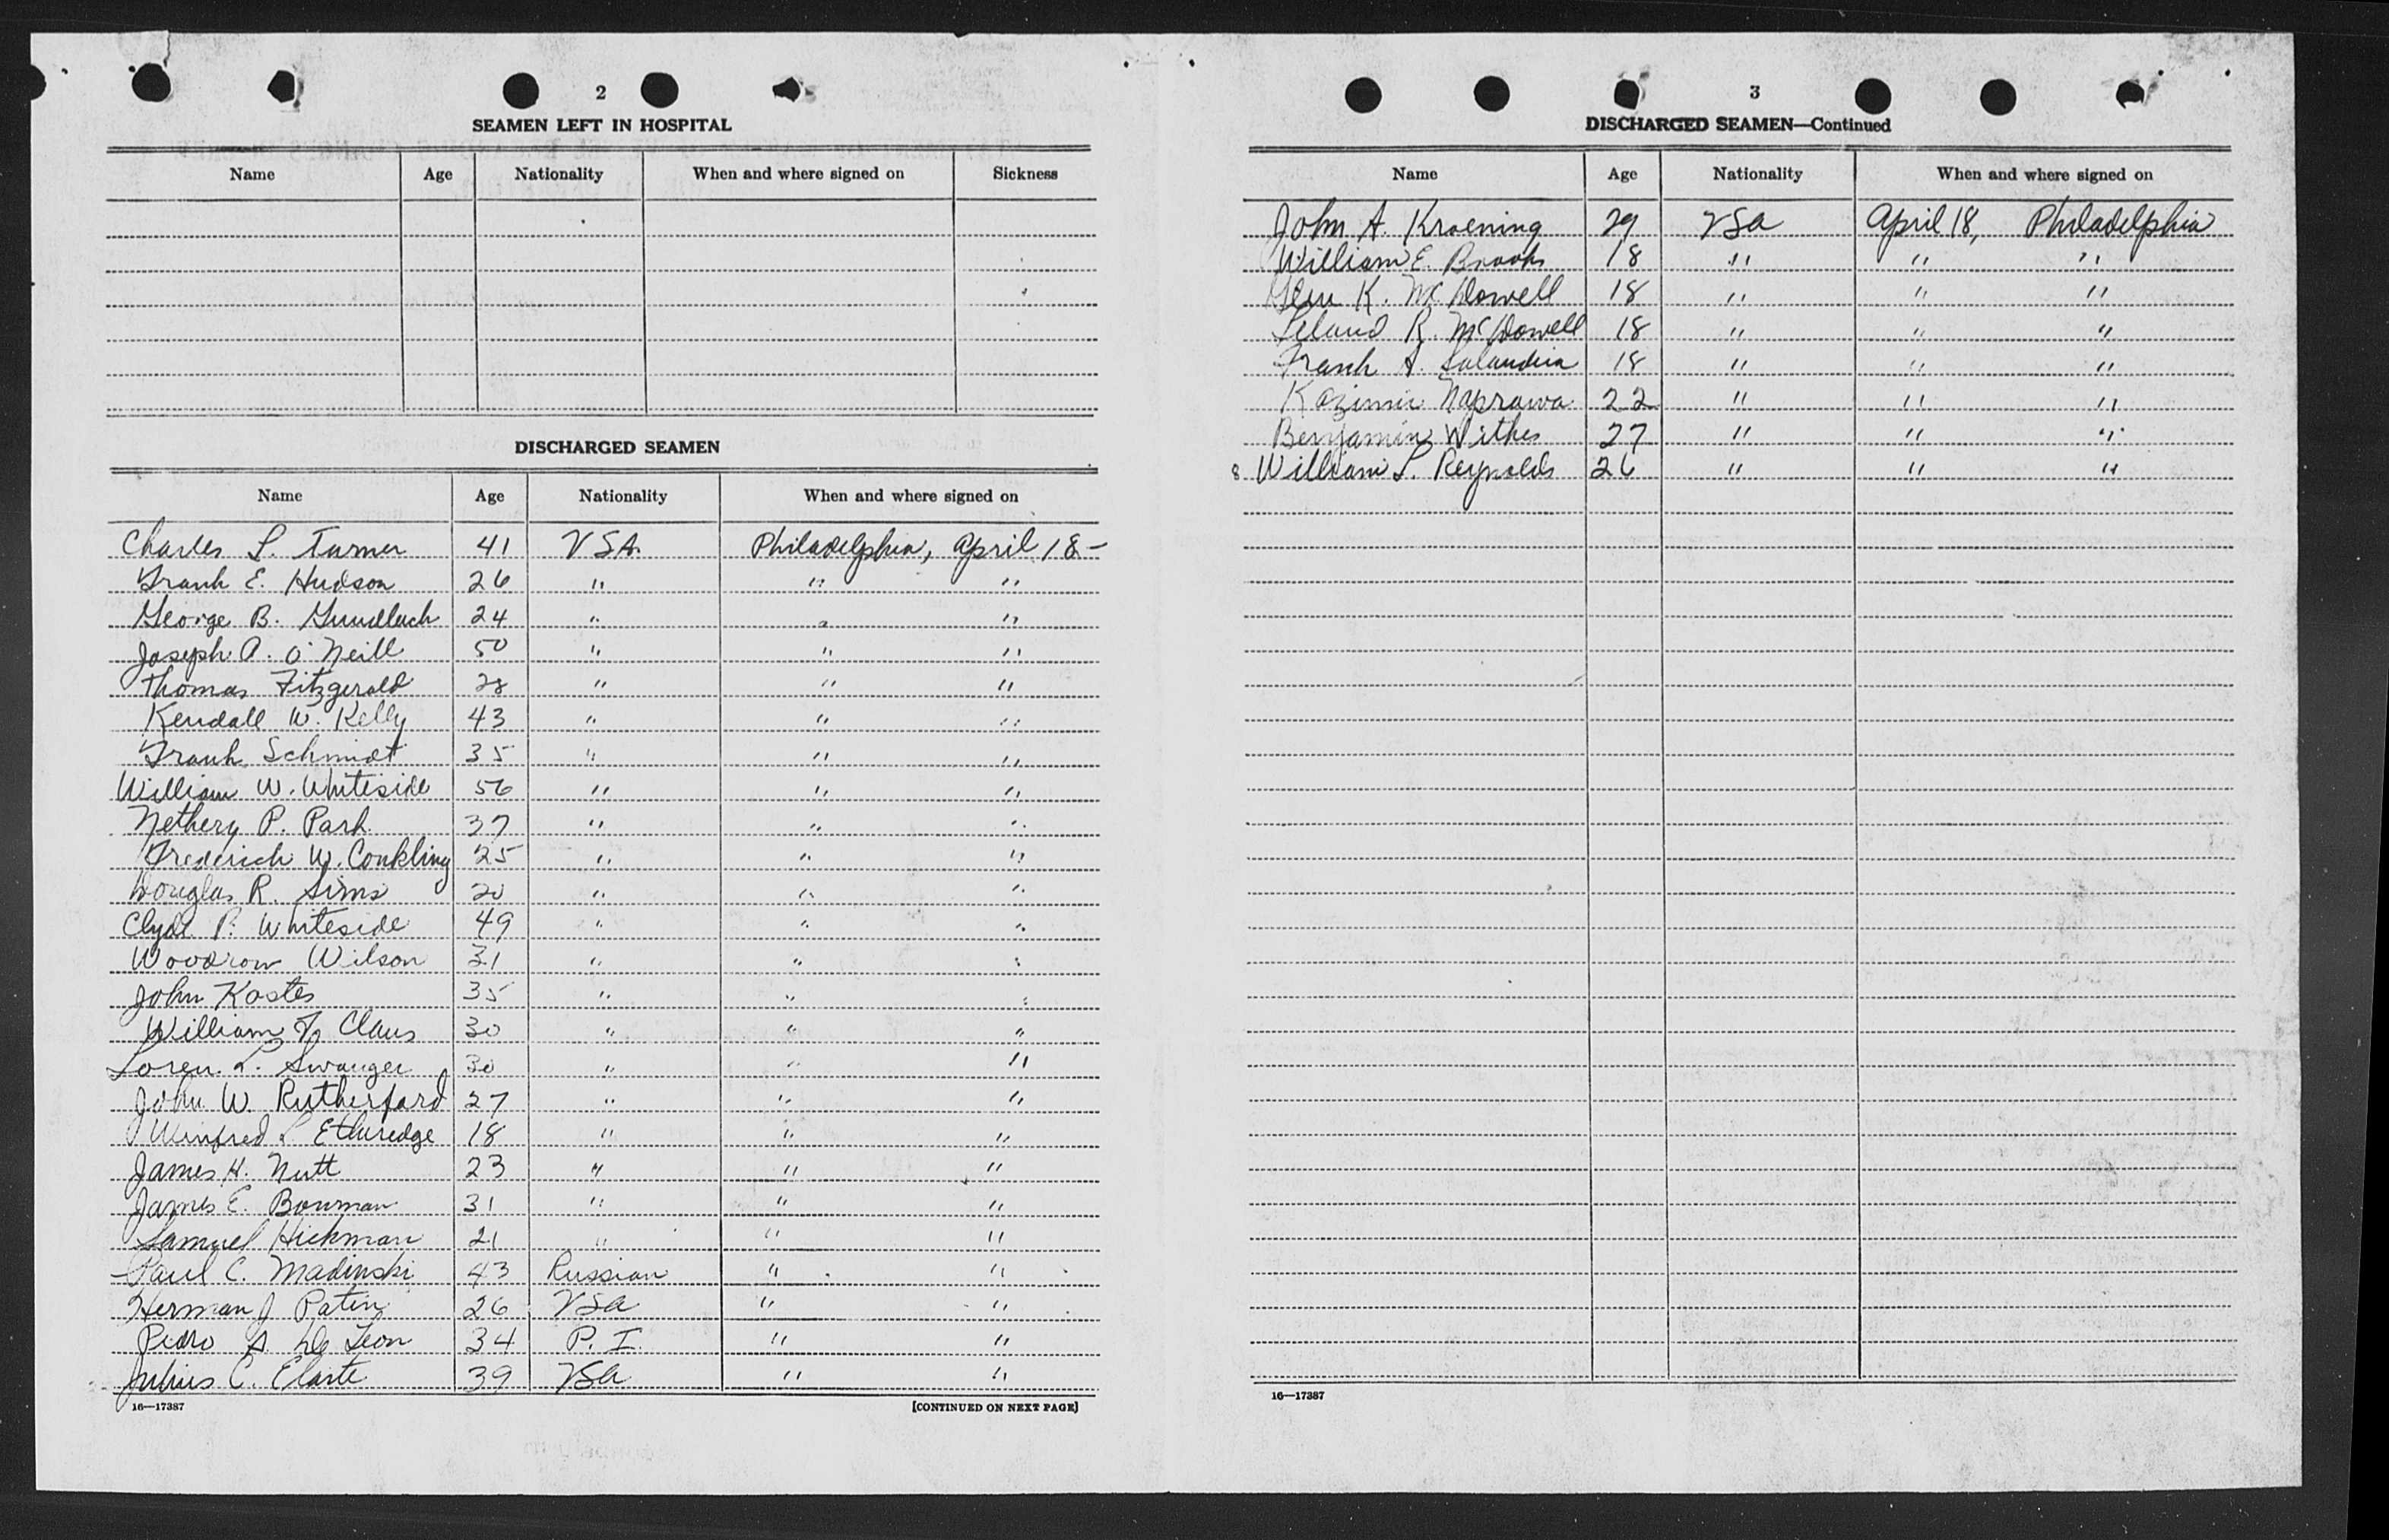 2
SEAMEN LEFT IN HOSPITAL
Name Age Nationality When and where signed on Sickness
DISCHARGED SEAMEN
Name Age Nationality When and where signed on
Charles L. Turner 41 USA. Philadelphia, April 18-
Frank E. Hudson 26 " " "
George B. Gundlach 24 " " "
Joseph A. O'Neill 50 " " "
Thomas Fitzgerald 28 " " "
Kendall W. Kelly 43 " " "
Frank Schmidt 35 " " "
William W. Whiteside 56 " " "
Nethery P. Park 37 " " "
Frederick W. Conkling 25 " " "
Douglas R. Sims 20 " " "
Clyde P. Whiteside 49 " " "
Woodrow Wilson 31 " " "
John Kostes 35 " " "
William F. Claus 30 " " "
Loren L. Swauger 30 " " "
John W. Rutherford 27 " " "
Winfred L Etheredge 18 " " "
James H. Nutt 23 " " "
James E. Bowman 31 " " "
Samuel Hickman 21 " " "
Paul C. Madinski 43 Russian " "
Herman J Patin 26 USA " "
Pedro A. De Leon 34 P. I. " "
Julius C. Elarte 39 USA " "
16—17387 [CONTINUED ON NEXT PAGE]
3
DISCHARGED SEAMEN—Continued
Name Age Nationality When and where signed on
John A. Kroening 29 USA April 18, Philadelphia
William E. Brooks 18 " " "
Glen K. McDowell 18 " " "
Leland R. McDowell 18 " " "
Frank A. Salandria 18 " " "
Kazimir Naprawa 22 " " "
Benjamin Withes 27 " " "
8 William L. Reynolds 26 " " "
16—17387